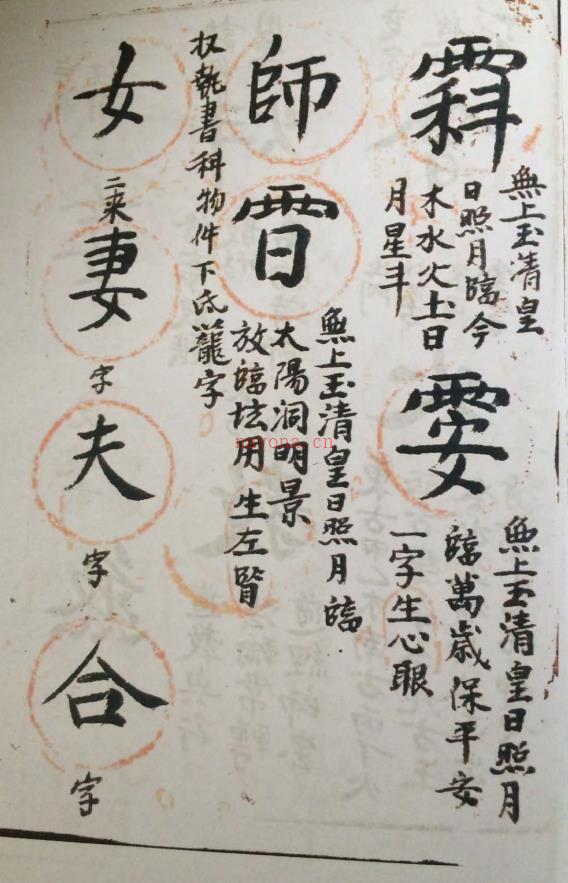 無上玉清皇
日照月臨今
木水火土日
月星斗
無上玉清皇日照月
臨萬歲保平安
一字生心眼
師
無上玉清皇日照月臨
太陽洞明景
放臨坛用生左腎
収執書科物件下底籠字
女
二来
妻
字
夫
字
合
字
nayona.cn